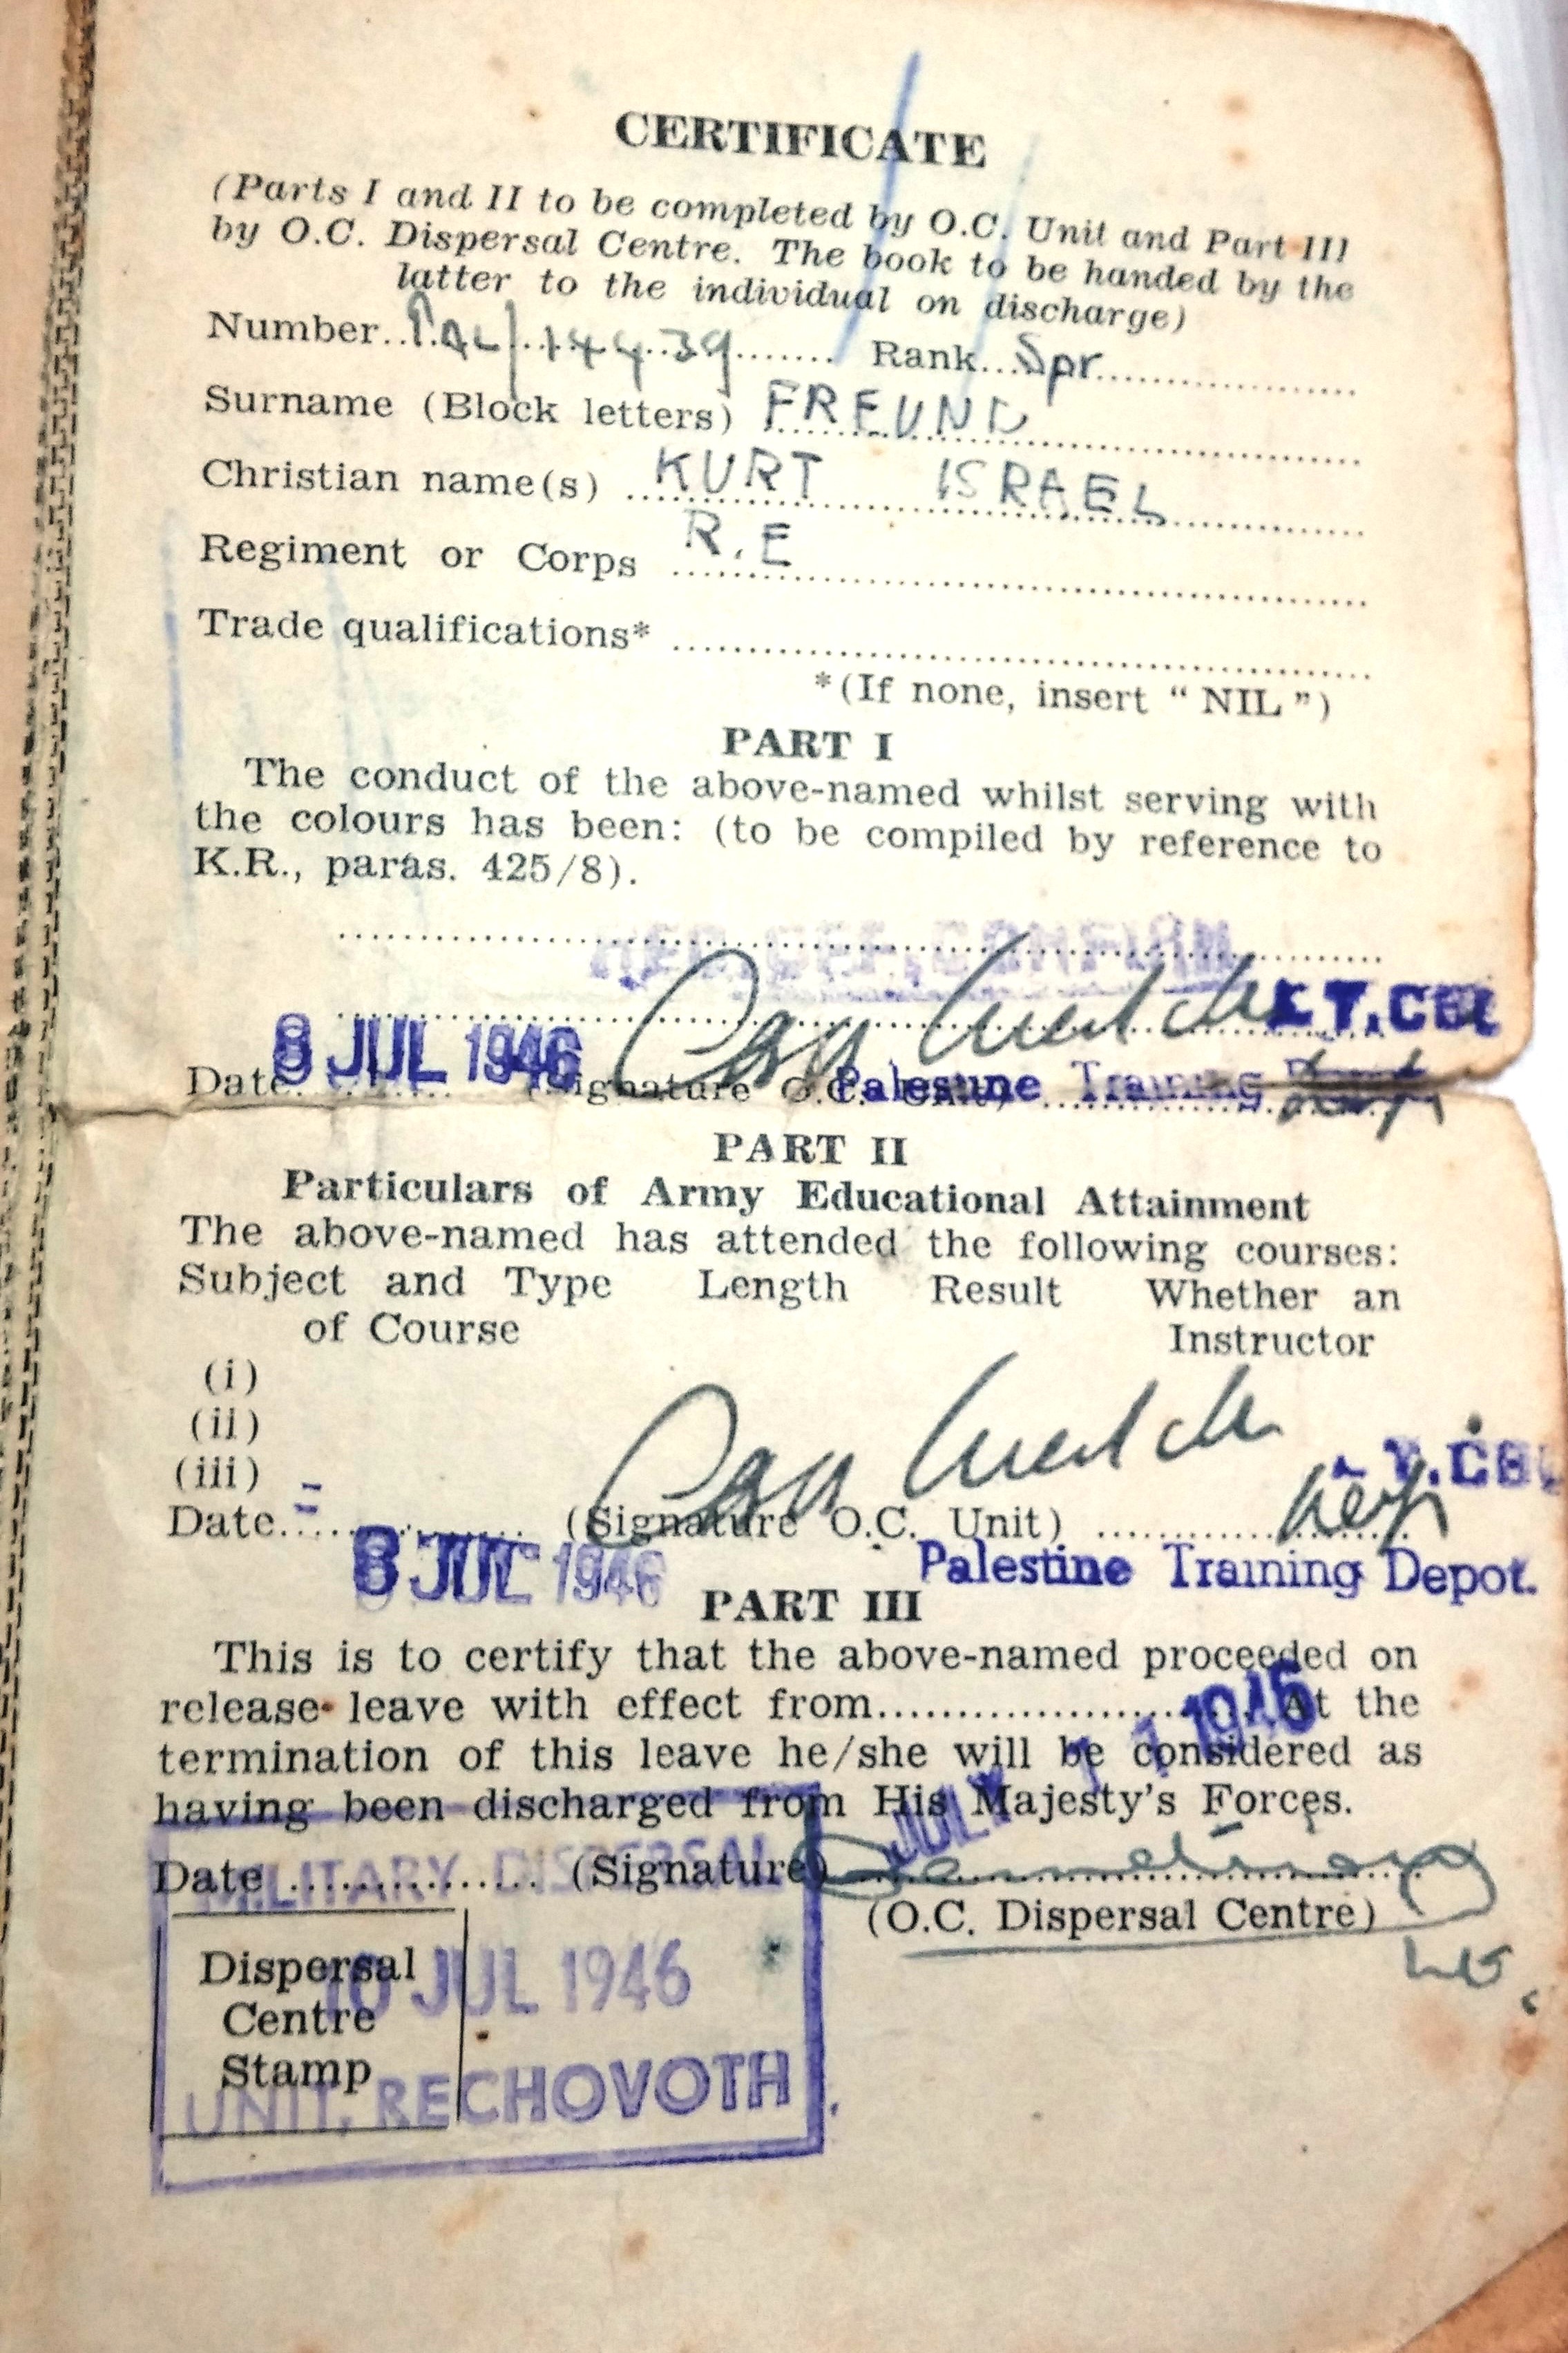 CERTIFICATE
(Parts I and II to be completed by O.C. Unit and Part III
by O.C. Dispersal Centre. The book to be handed by the
latter to the individual on discharge)
Number..PAL/14439........ Rank...Spr..................
Surname (Block letters) FREUND
Christian name(s) KURT ISRAEL
Regiment or Corps R.E
Trade qualifications*
*(If none, insert “NIL”)
PART I
The conduct of the above-named whilst serving with
the colours has been: (to be compiled by reference to
K.R., paras. 425/8).
8 JUL 1946
Date (Signature O.C. Unit) Palestine Training
PART II
Particulars of Army Educational Attainment
The above-named has attended the following courses:
Subject and Type Length Result Whether an
of Course Instructor
(i)
(ii)
(iii)
Date (Signature O.C. Unit)
8 JUL 1946 Palestine Training Depot.
PART III
This is to certify that the above-named proceeded on
release leave with effect from JULY 1946 At the
termination of this leave he/she will be considered as
having been discharged from His Majesty's Forces.
Date (Signature)
MILITARY DISPERSAL
(O.C. Dispersal Centre)
Dispersal
Centre
Stamp
10 JUL 1946
UNIT, RECHOVOTH